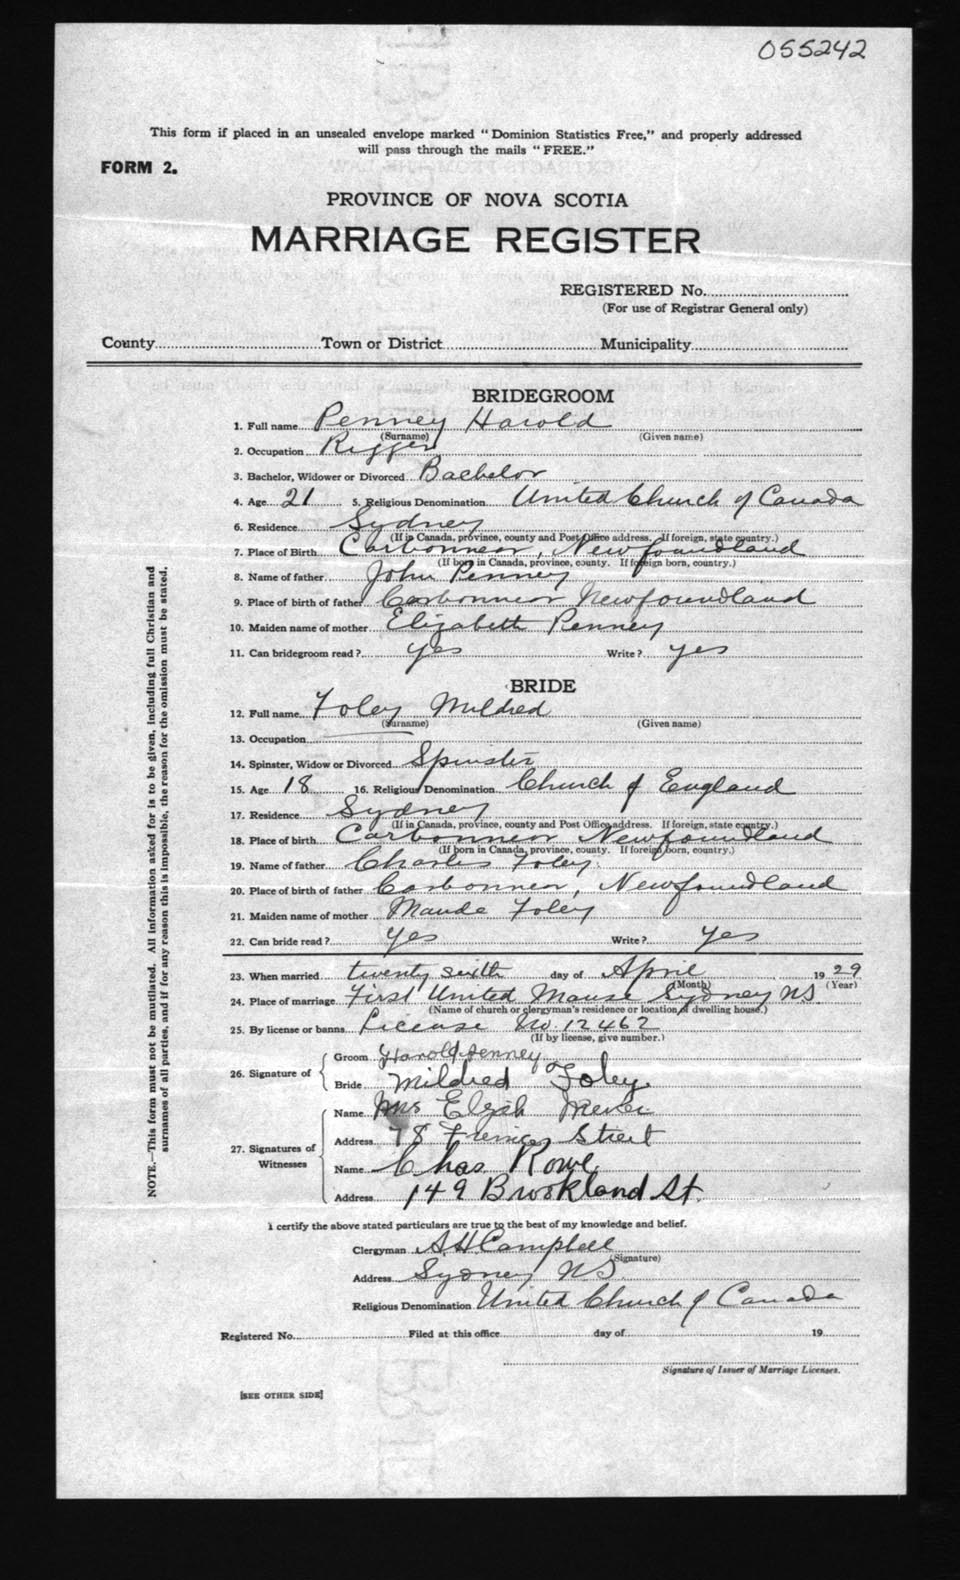 055242
This form if placed in an unsealed envelope marked "Dominion Statistics Free," and properly addressed
will pass through the mails "FREE."
FORM 2.
PROVINCE OF NOVA SCOTIA
MARRIAGE REGISTER
REGISTERED No.
(For use of Registrar General only)
County Town or District Municipality
BRIDEGROOM
1. Full name Penney Harold
(Surname) (Given name)
2. Occupation Rigger
3. Bachelor, Widower or Divorced Bachelor
4. Age 21 5. Religious Denomination United Church of Canada
6. Residence Sydney
(If in Canada, province, county and Post Office address. If foreign, state country.)
7. Place of Birth Carbonnear, Newfoundland
(If born in Canada, province, county. If foreign born, country.)
8. Name of father John Penney
9. Place of birth of father Carbonnear Newfoundland
10. Maiden name of mother Elizabeth Penney
11. Can bridegroom read? yes Write? yes
BRIDE
12. Full name Foley Mildred
(Surname) (Given name)
13. Occupation
14. Spinster, Widow or Divorced Spinster
15. Age 18 16. Religious Denomination Church of England
17. Residence Sydney
(If in Canada, province, county and Post Office address. If foreign, state country.)
18. Place of birth Carbonnear Newfoundland
(If born in Canada, province, county. If foreign born, country.)
19. Name of father Charles Foley.
20. Place of birth of father Carbonnear, Newfoundland
21. Maiden name of mother Maude Foley
22. Can bride read? yes Write? yes
23. When married twenty sixth day of April 1929
(Month) (Year)
24. Place of marriage First United Manse Sydney NS.
(Name of church or clergyman's residence or location of dwelling house.)
25. By license or banns License No 12462
(If by license, give number.)
26. Signature of
Groom Harold Penney
Bride Mildred Foley
27. Signatures of Witnesses
Name Mrs Elijah
Address 78 Street
Name Chas. Rowe
Address 149 Brookland St.
I certify the above stated particulars are true to the best of my knowledge and belief.
Clergyman A H Campbell
(Signature)
Address Sydney NS
Religious Denomination United Church of Canada
Registered No. Filed at this office day of 19
Signature of Issuer of Marriage Licenses.
[SEE OTHER SIDE]
NOTE.—This form must not be mutilated. All information asked for is to be given, including full Christian and
surnames of all parties, and if for any reason this is impossible, the reason for the omission must be stated.